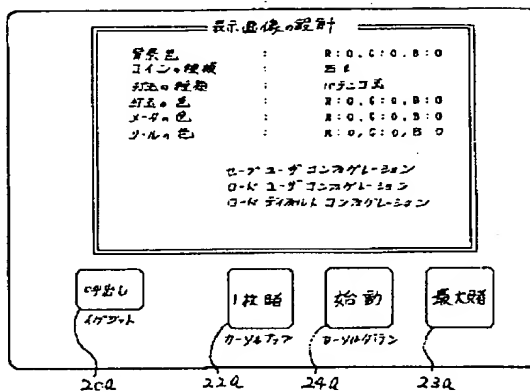 表示画像の設計
背景色 : R:0, G:0, B:0
コインの種類 :
打玉の種類 : パチンコ玉
打玉の色 : R:0, G:0, B:0
メータの色 : R:0, G:0, B:0
リールの色 : R:0, G:0, B:0
セーブ ユーザ コンフィグレーション
ロード ユーザ コンフィグレーション
ロード ディフォルト コンフィグレーション
呼出し 1枚賭 始動 最大賭
イグジット カーソルアップ カーソルダウン
20a 22a 24a 23a